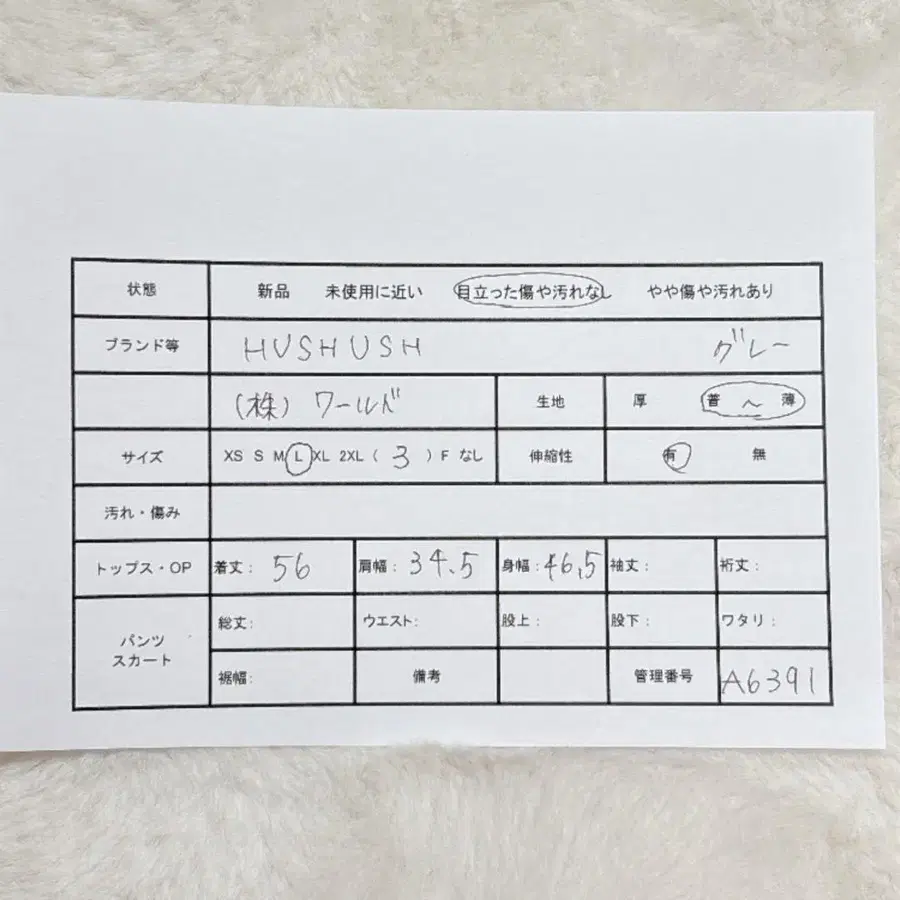 状態 新品 未使用に近い 目立った傷や汚れなし やや傷や汚れあり
ブランド等 HUSHUSH グレー
(株)ワールド 生地 厚 普 〜 薄
サイズ XS S M L XL 2XL ( 3 ) F なし 伸縮性 有 無
汚れ・傷み
トップス・OP 着丈: 56 肩幅: 34.5 身幅: 46.5 袖丈: 裄丈:
パンツ スカート 総丈: ウエスト: 股上: 股下: ワタリ:
裾幅: 備考 管理番号 A6391